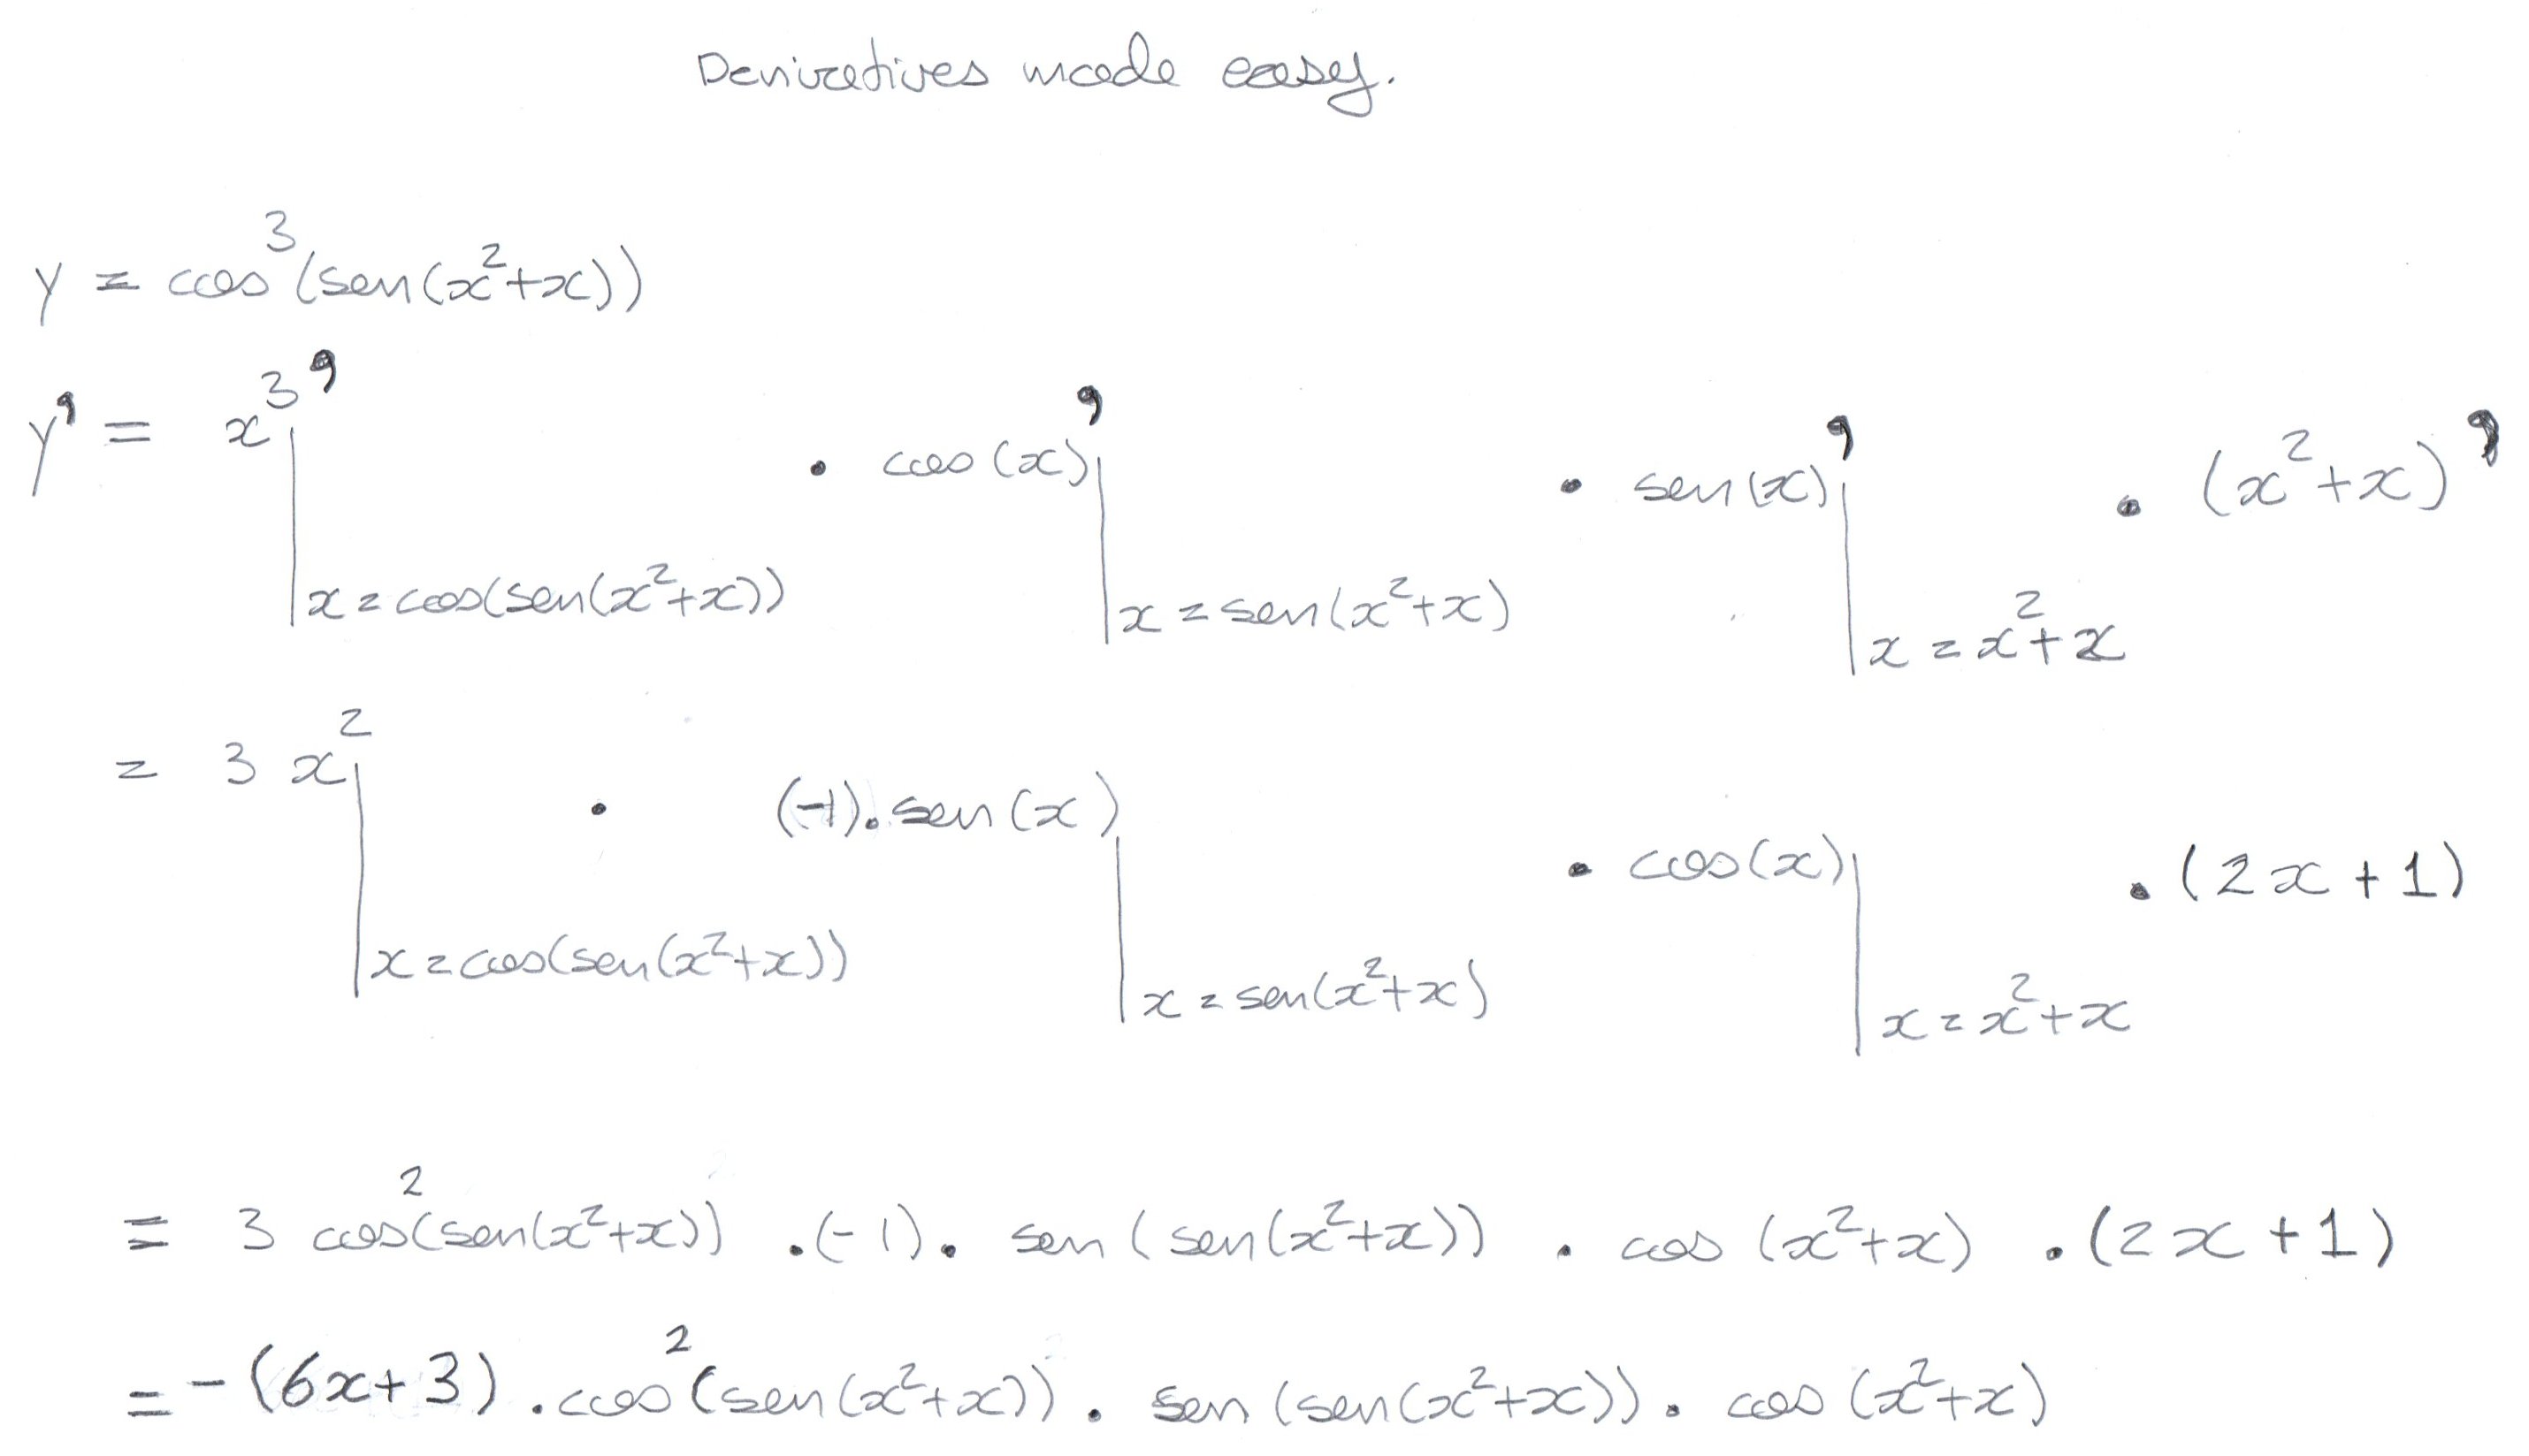 Derivatives made easy.
y = cos³(sen(x²+x))
y' = x³'|x=cos(sen(x²+x)) · cos(x)'|x=sen(x²+x) · sen(x)'|x=x²+x · (x²+x)'
= 3x²|x=cos(sen(x²+x)) · (-1)·sen(x)|x=sen(x²+x) · cos(x)|x=x²+x · (2x+1)
= 3 cos²(sen(x²+x)) · (-1) · sen(sen(x²+x)) · cos(x²+x) · (2x+1)
= -(6x+3) · cos²(sen(x²+x)) · sen(sen(x²+x)) · cos(x²+x)